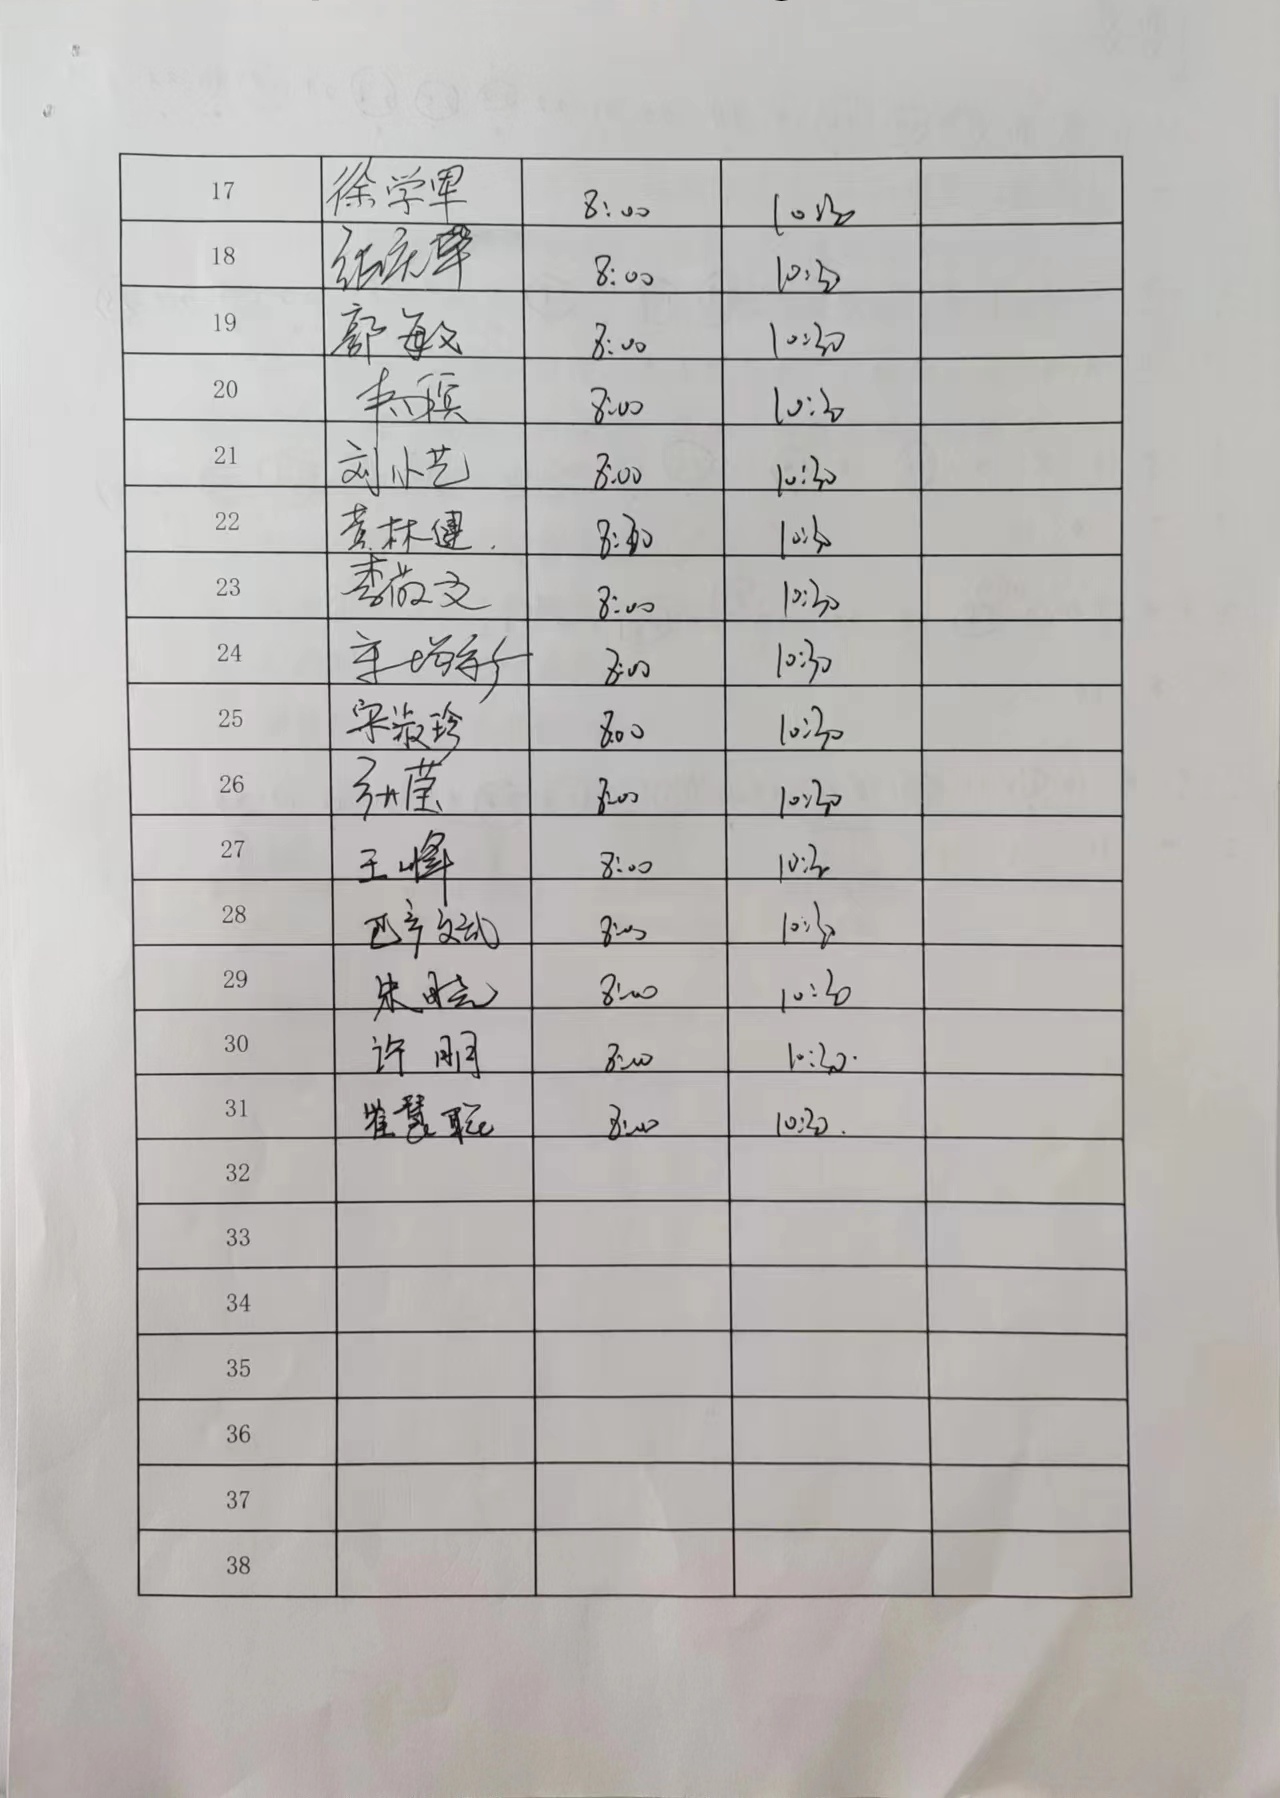 17 徐学军 8:00 10:30
18 张庆华 8:00 10:30
19 郭敏 8:00 10:30
20 8:00 10:30
21 刘小艺 8:00 10:30
22 黄林健. 10:30
23 李敬文 8:00 10:30
24 8:00 10:30
25 宋淑珍 8:00 10:30
26 孙莹 8:00 10:30
27 王峰 8:00 10:30
28 8:00 10:30
29 朱晓 8:00 10:30
30 许明 8:00 10:30.
31 崔慧聪 8:00 10:30.
32
33
34
35
36
37
38